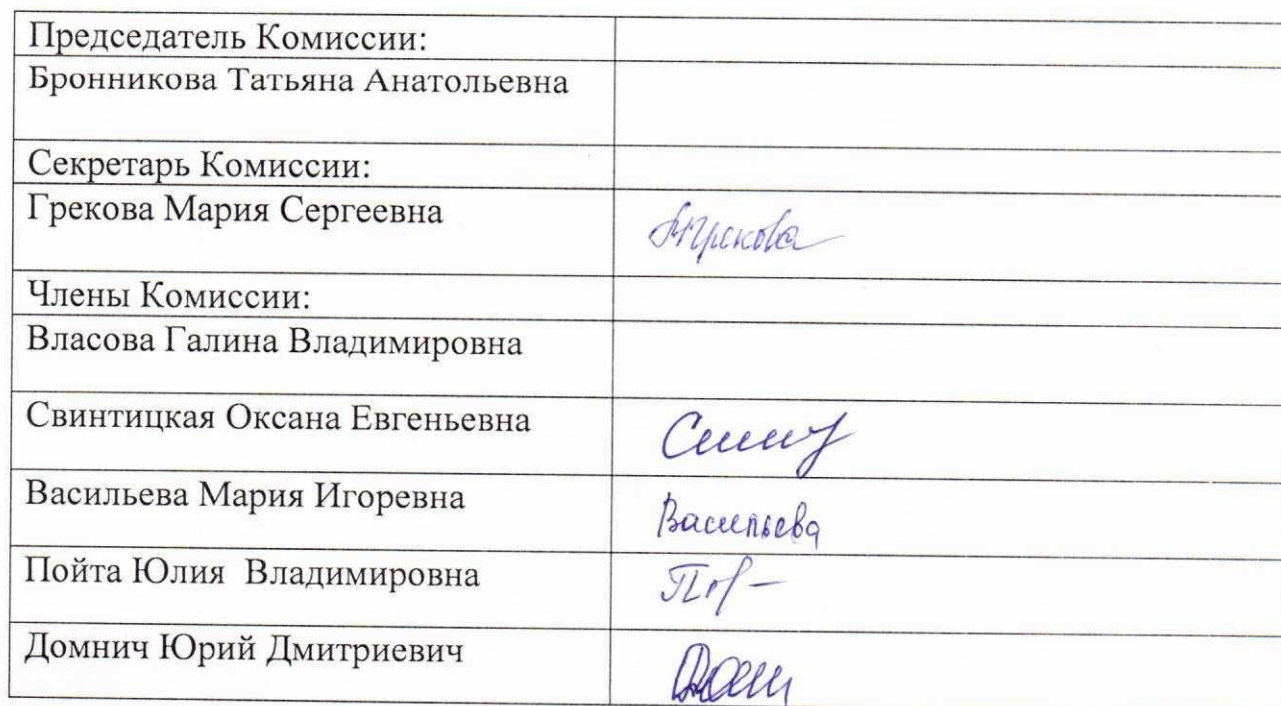 Председатель Комиссии:
Бронникова Татьяна Анатольевна
Секретарь Комиссии:
Грекова Мария Сергеевна
Члены Комиссии:
Власова Галина Владимировна
Свинтицкая Оксана Евгеньевна
Васильева Мария Игоревна Васильева
Пойта Юлия Владимировна
Домнич Юрий Дмитриевич